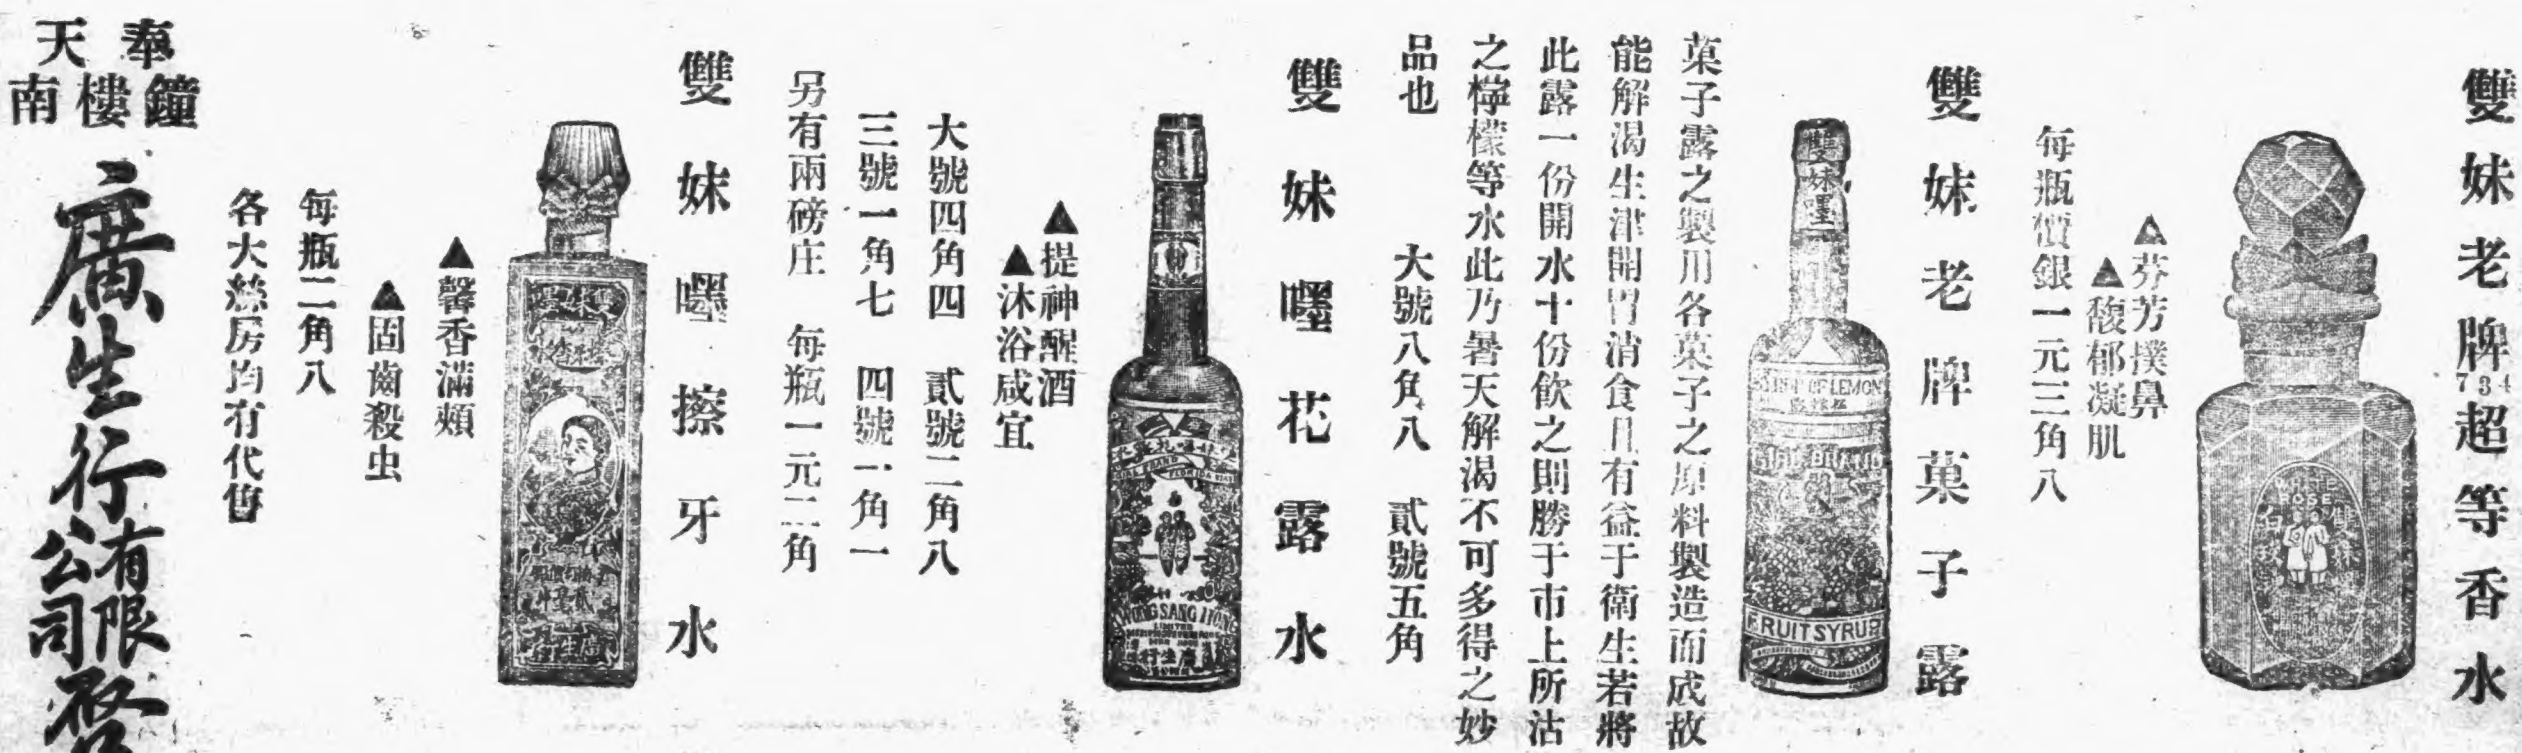 雙妹老牌超等香水
734
▲芬芳撲鼻
▲馥郁凝肌
每瓶價銀一元三角八
WHITE
ROSE
雙妹
白
雙妹老牌菓子露
雙妹嚜
OF LEMON
BRAND
FRUIT SYRUP
菓子露之製用各菓子之原料製造而成故
能解渴生津開胃消食且有益于衛生若將
此露一份開水十份飲之則勝于市上所沽
之檸檬等水此乃暑天解渴不可多得之妙
品也　大號八角八　貳號五角
雙妹嚜花露水
KWONG SANG HONG
LIMITED
廣生行
▲提神醒酒
▲沐浴咸宜
大號四角四　貳號二角八
三號一角七　四號一角一
另有兩磅庄　每瓶一元二角
雙妹嚜擦牙水
廣生行
▲馨香滿頰
▲固齒殺虫
每瓶二角八
各大葯房均有代售
奉天
鐘樓南
廣生行有限公司啓